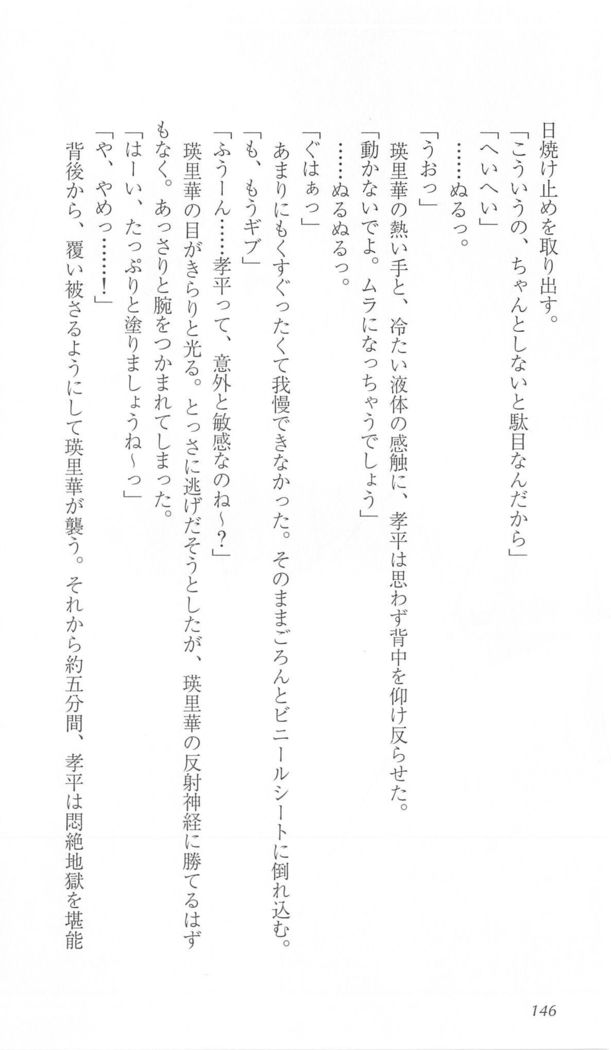 日焼け止めを取り出す。
「こういうの、ちゃんとしないと駄目なんだから」
「へいへい」
……ぬるっ。
「うおっ」
瑛里華の熱い手と、冷たい液体の感触に、孝平は思わず背中を仰け反らせた。
「動かないでよ。ムラになっちゃうでしょう」
……ぬるぬるっ。
「ぐはぁっ」
あまりにもくすぐったくて我慢できなかった。そのままごろんとビニールシートに倒れ込む。
「も、もうギブ」
「ふうーん……孝平って、意外と敏感なのね～？」
瑛里華の目がきらりと光る。とっさに逃げだそうとしたが、瑛里華の反射神経に勝てるはず
もなく。あっさりと腕をつかまれてしまった。
「はーい、たっぷりと塗りましょうね～っ」
「や、やめっ……！」
背後から、覆い被さるようにして瑛里華が襲う。それから約五分間、孝平は悶絶地獄を堪能
146